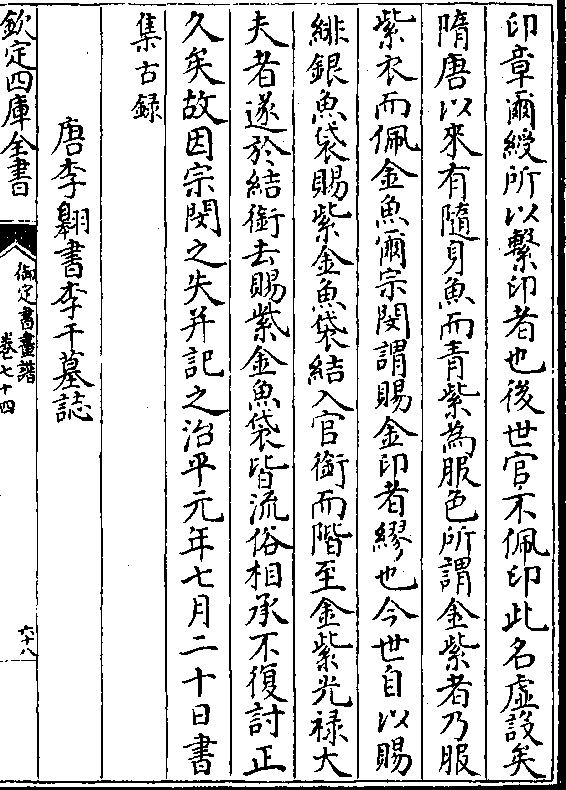 印章爾綬所以繫印者也後世官不佩印此名虛設矣
隋唐以來有隨身魚而青紫為服色所謂金紫者乃服
紫衣而佩金魚爾宗閔謂賜金印者繆也今世自以賜
緋銀魚袋賜紫金魚袋結入官銜而階至金紫光祿大
夫者遂於結銜去賜紫金魚袋皆流俗相承不復討正
久矣故因宗閔之失并記之治平元年七月二十日書
集古録
唐李翺書李干墓誌
欽定四庫全書
御定書畫譜
卷七十四
六十八